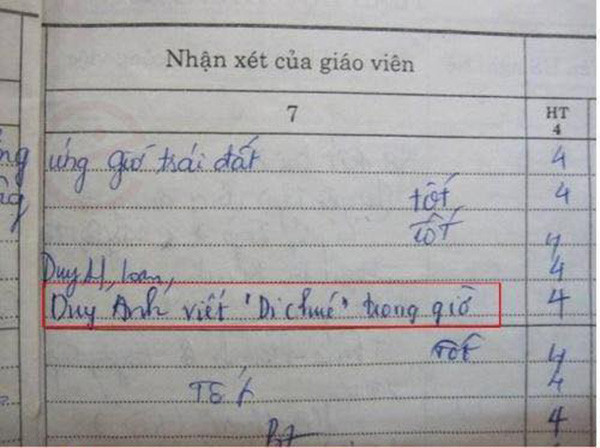 Nhận xét của giáo viên
7
HT
4
ứng giờ trái đất 4
tốt 4
tốt 4
Duy H, Loan, 4
Duy Anh viết "Di chúc" trong giờ 4
Tốt 4
Tốt 4
4